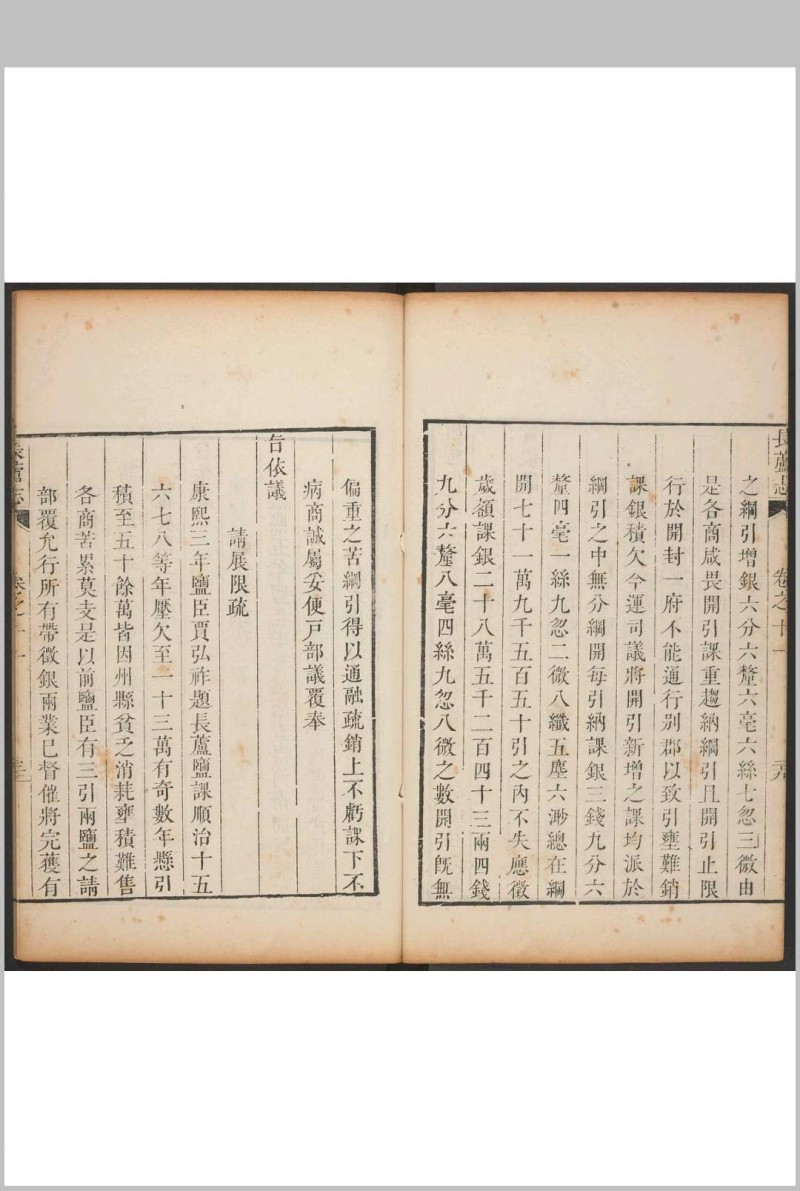 長蘆志 卷之十一
之綱引增銀六分六釐六毫六絲七忽三微由
是各商咸畏開引課重趨納綱引且開引止限
行於開封一府不能通行别郡以致引壅難銷
課銀積欠今運司議將開引新增之課均派於
綱引之中無分綱開每引納課銀三錢九分六
釐四毫一絲九忽二微八纖五塵六渺總在綱
開七十一萬九千五百五十引之內不失應徵
歲額課銀二十八萬五千二百四十三兩四錢
九分六釐八毫四絲九忽八微之數開引旣無
偏重之苦綱引得以通融疏銷上不虧課下不
病商誠屬妥便戸部議覆奉
旨依議
請展限疏
康熙三年鹽臣賈弘祚題長蘆鹽課順治十五
六七八等年壓欠至一十三萬有奇數年懸引
積至五十餘萬皆因州縣貧乏消耗壅積難售
各商苦累莫支是以前鹽臣有三引兩鹽之請
部覆允行所有帶徵銀兩業已督催將完獲有
長蘆志 卷之十一